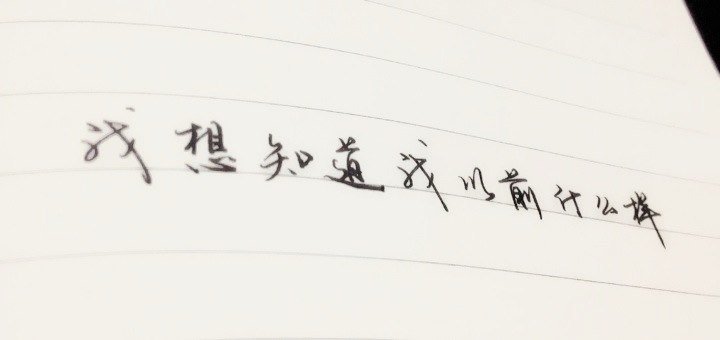 我想知道我以前什么样